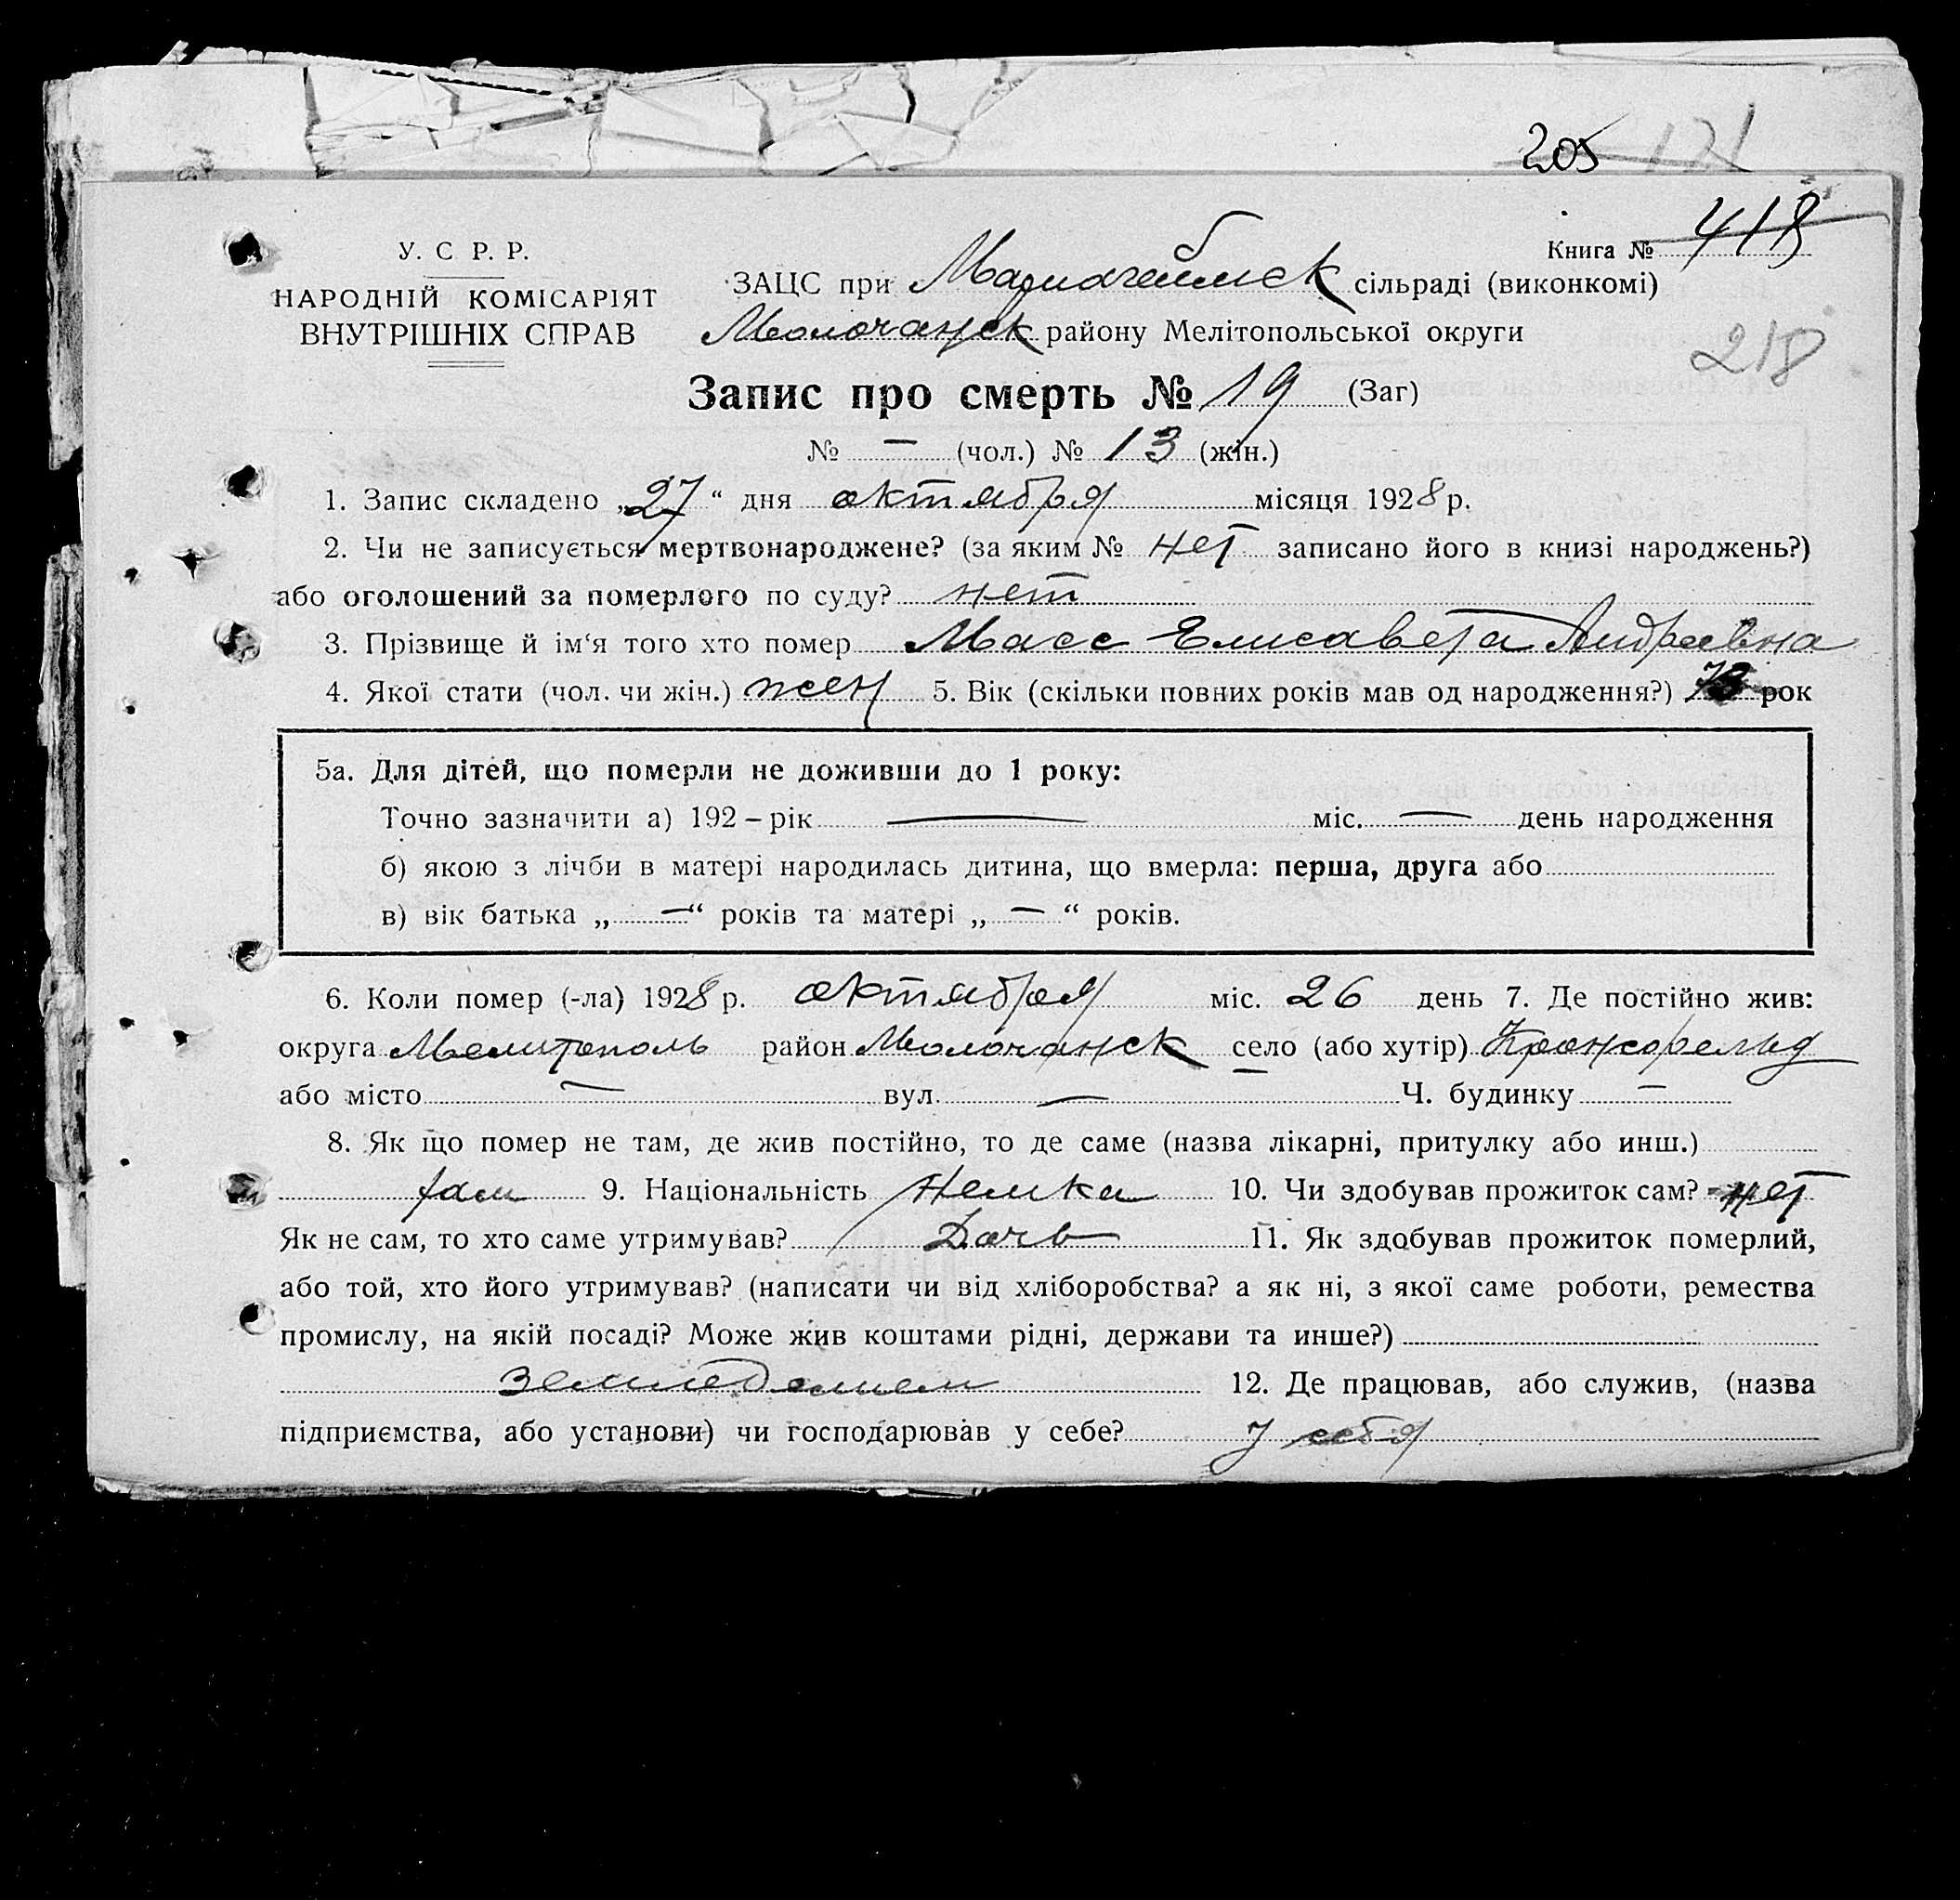 205 171
Книга № 418
У. С. Р. Р.
НАРОДНІЙ КОМІСАРІЯТ
ВНУТРІШНІХ СПРАВ
ЗАЦС при сільраді (виконкомі)
Молочанск району Мелітопольської округи
218
Запис про смерть № 19 (Заг)
№ — (чол.) № 13 (жін.)
1. Запис складено „27“ дня октября місяця 1928 р.
2. Чи не записується мертвонароджене? (за яким № нет записано його в книзі народжень?)
або оголошений за померлого по суду? нет
3. Прізвище й ім‘я того хто помер Масс Елисавета Андреевна
4. Якої стати (чол. чи жін.) жен 5. Вік (скільки повних років мав од народження?) 73 рок
5а. Для дітей, що померли не доживши до 1 року:
Точно зазначити а) 192 – рік — міс. — день народження
б) якою з лічби в матері народилась дитина, що вмерла: перша, друга або
в) вік батька „ — “ років та матері „ — “ років.
6. Коли помер (-ла) 1928 р. октября міс. 26 день 7. Де постійно жив:
округа Мелитополь район Молочанск село (або хутір) Кронсфельд
або місто — вул. — Ч. будинку —
8. Як що помер не там, де жив постійно, то де саме (назва лікарні, притулку або инш.)
там 9. Національність Немка 10. Чи здобував прожиток сам? нет
Як не сам, то хто саме утримував? Дочь 11. Як здобував прожиток померлий,
або той, хто його утримував? (написати чи від хліборобства? а як ні, з якої саме роботи, ремества
промислу, на якій посаді? Може жив коштами рідні, держави та инше?)
земледелием 12. Де працював, або служив, (назва
підприємства, або установи) чи господарював у себе? у себя